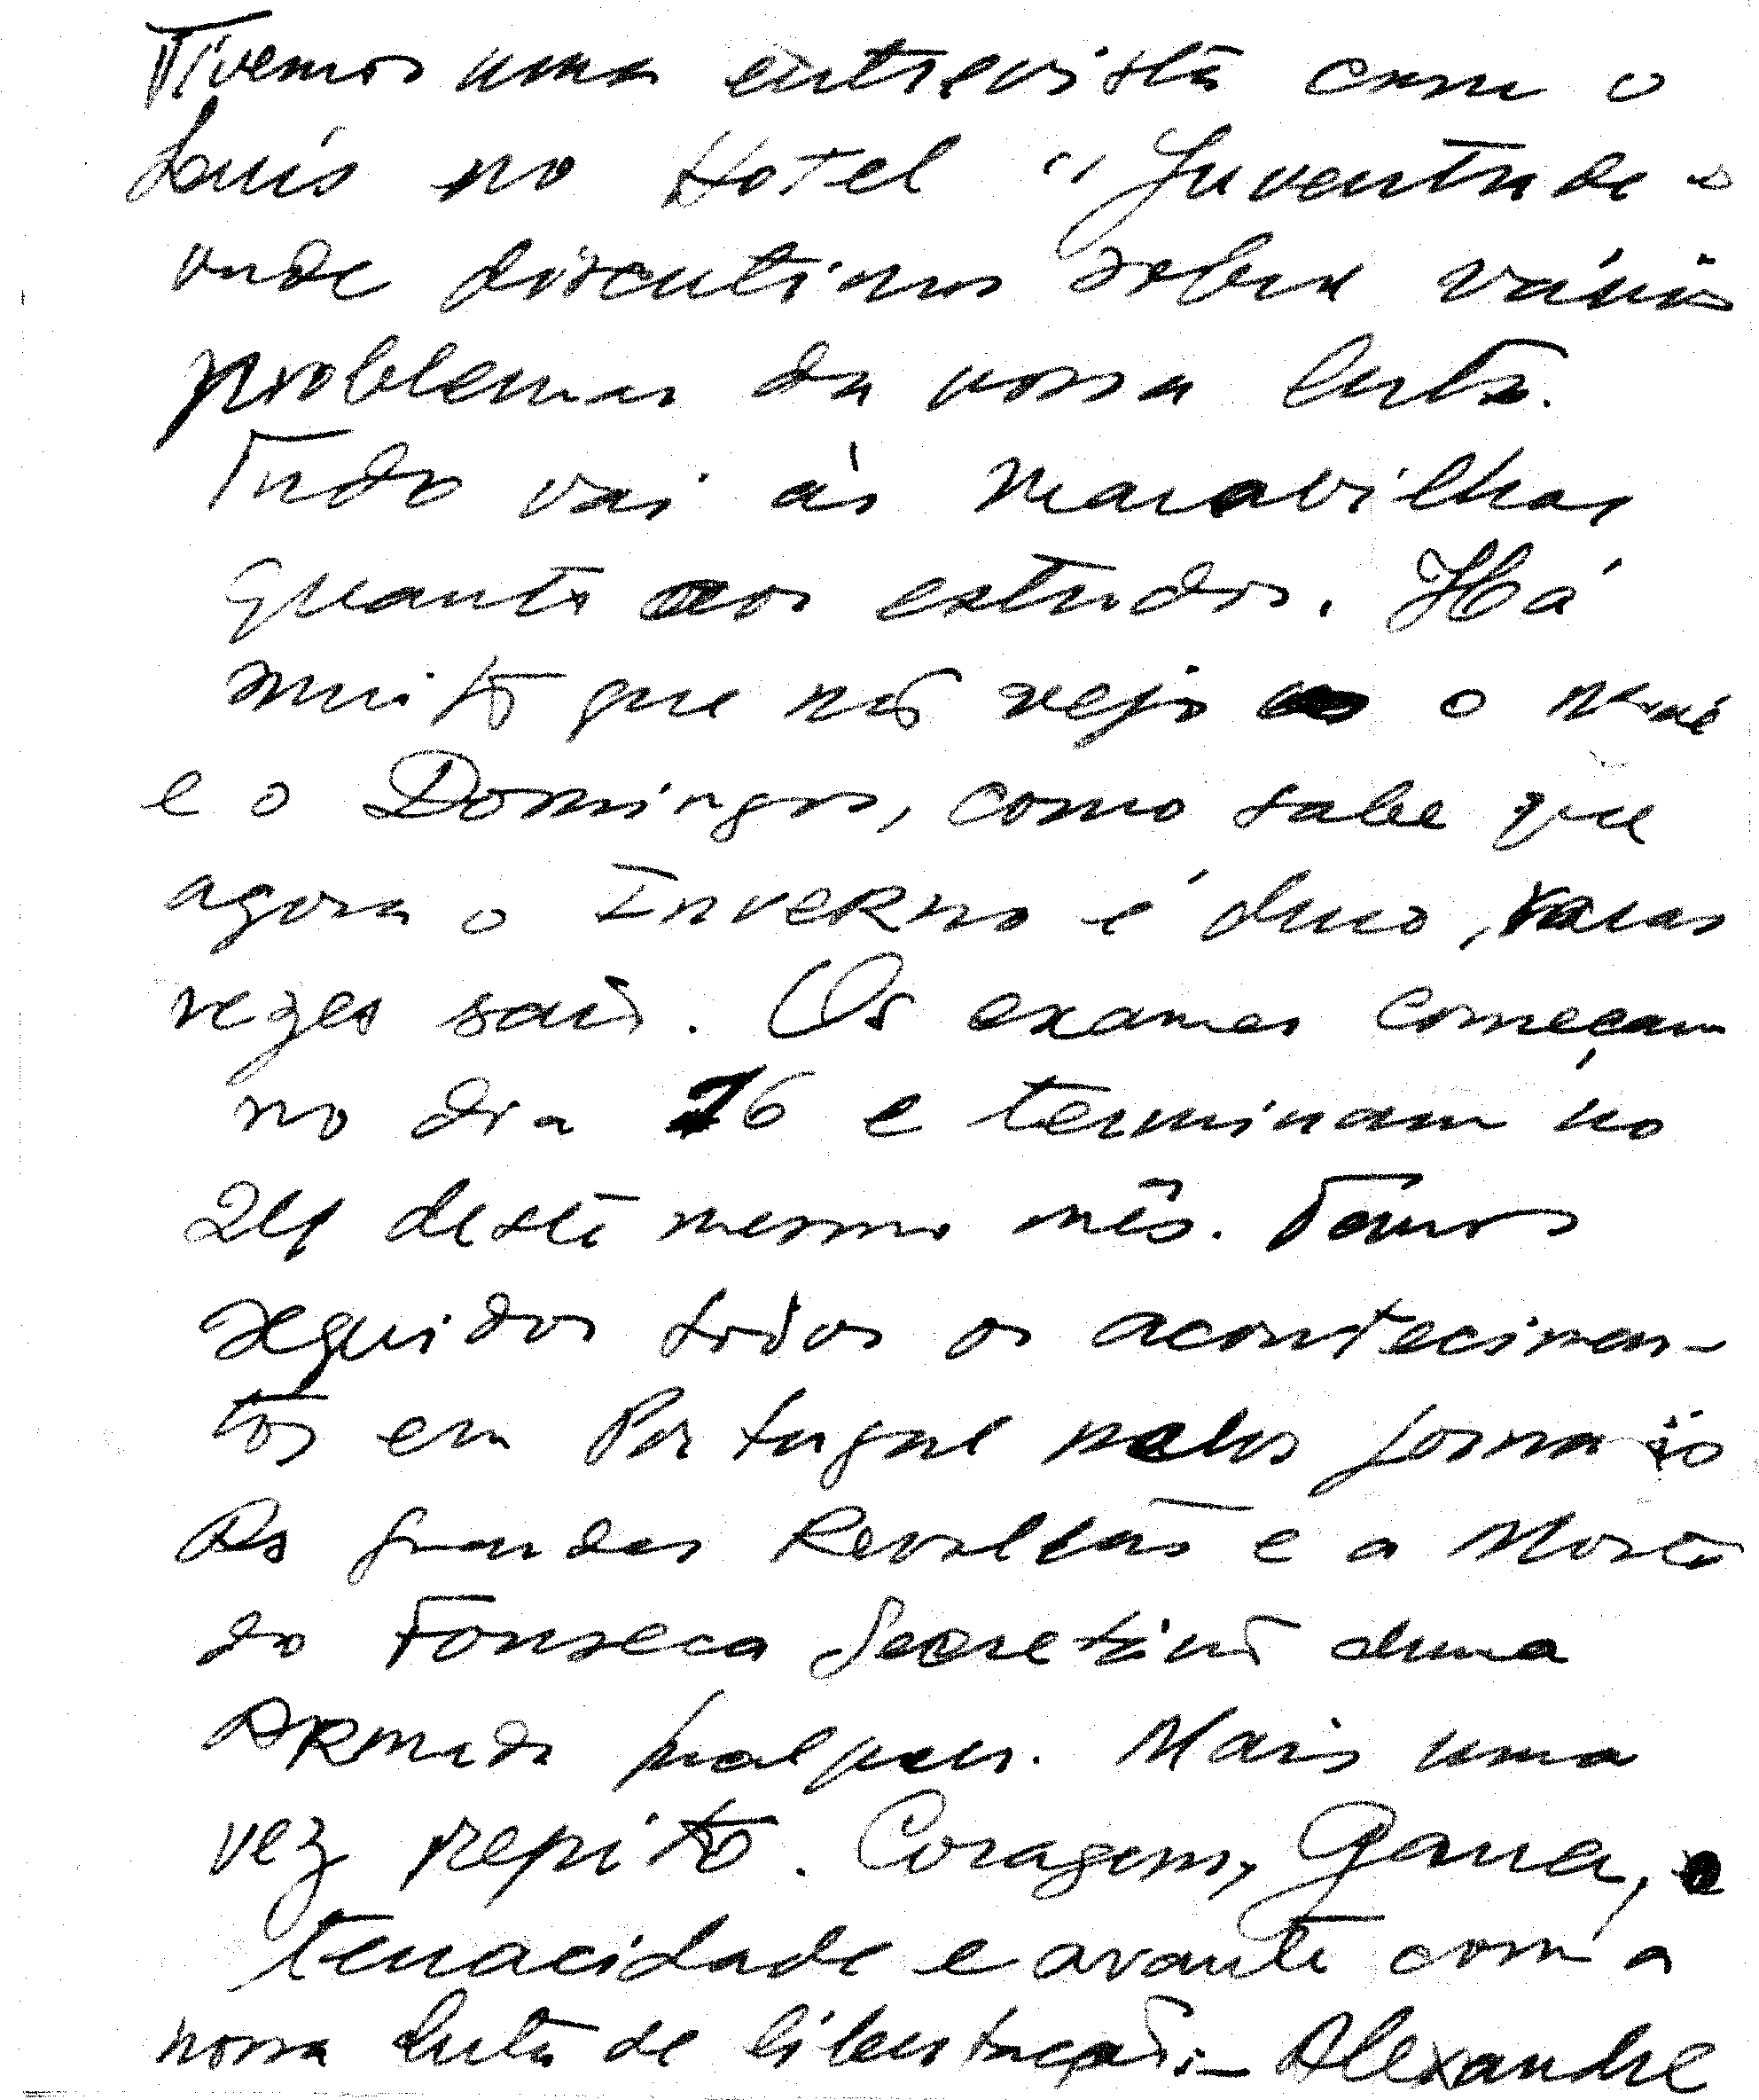 Tivemos uma entrevista com o
Luís no Hotel "Juventude"
onde discutimos sobre vários
problemas da nossa luta.
Tudo vai às maravilhas
quanto aos estudos. Há
muito que não vejo o
e o Domingos, como sabe que
agora o Inverno é duro, raras
vezes saio. Os exames começam
no dia 16 e terminam no
24 deste mesmo mês. Temos
seguidos todos os acontecimen-
tos em Portugal pelos jornais
As grandes Revoltas e a Morte
do Fonseca Secretário duma
Armada Mais uma
vez repito. Coragem, Garra, e
tenacidade e avante com a
nossa luta de libertação.- Alexandre